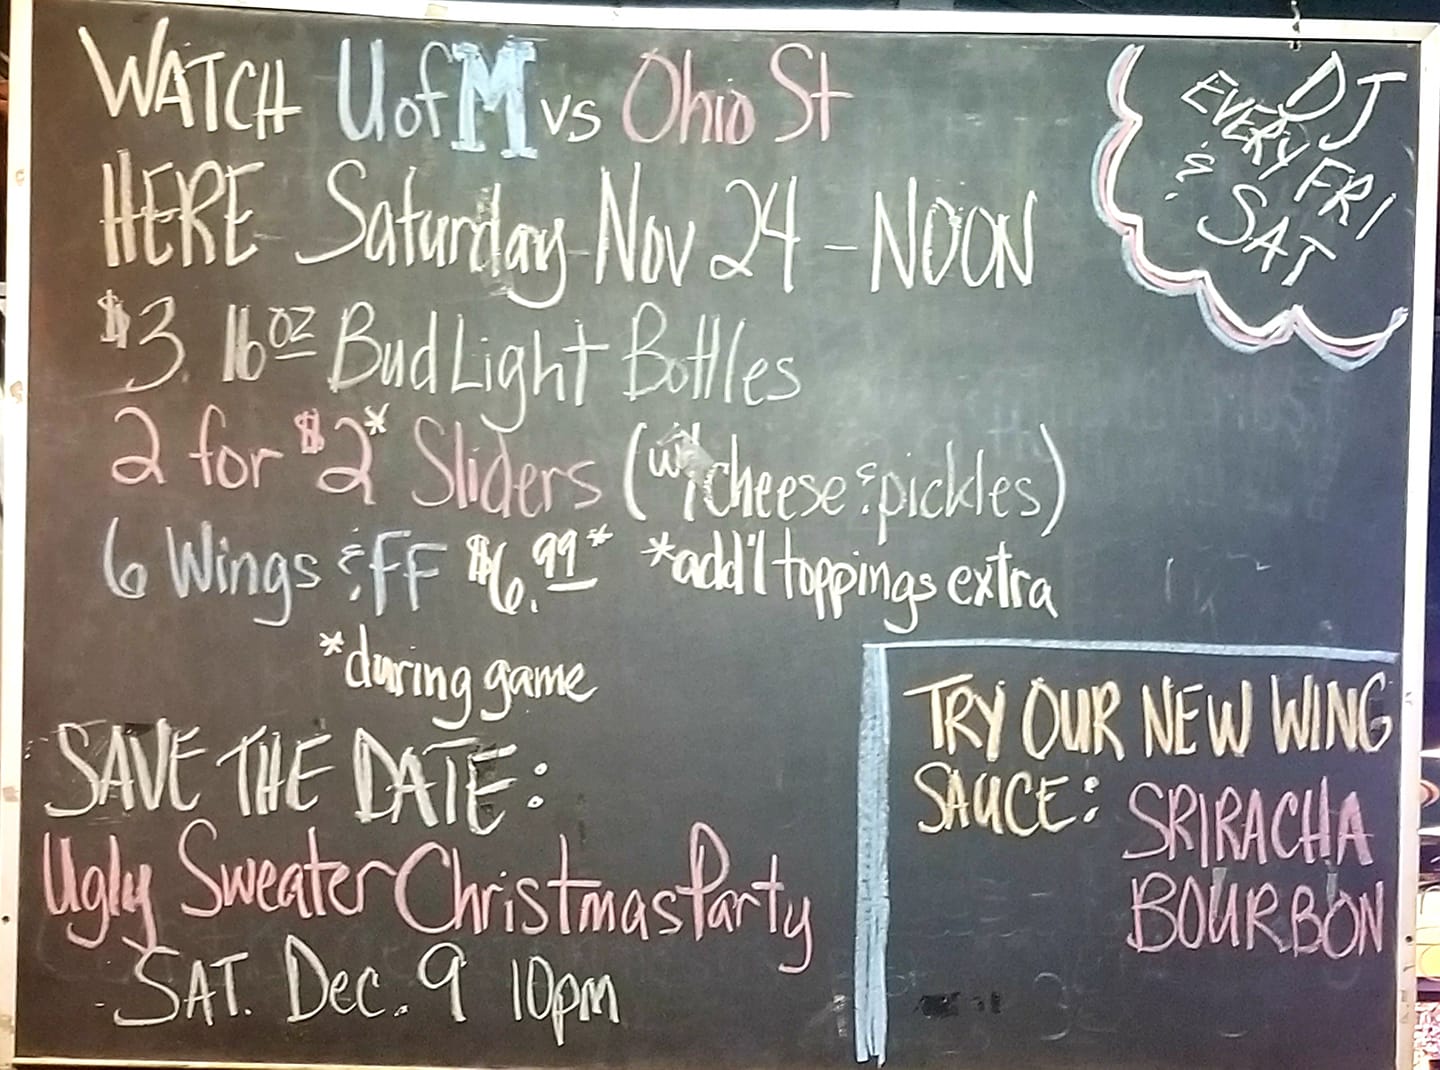 WATCH UofM vs Ohio St
HERE Saturday Nov 24 - NOON
$3. 16oz Bud Light Bottles
2 for $2* Sliders (w/ cheese & pickles)
6 Wings & FF $6.99* *add'l toppings extra
*during game
SAVE THE DATE:
Ugly Sweater Christmas Party
SAT. Dec. 9 10pm
DJ
EVERY FRI
& SAT
TRY OUR NEW WING
SAUCE: SRIRACHA
BOURBON